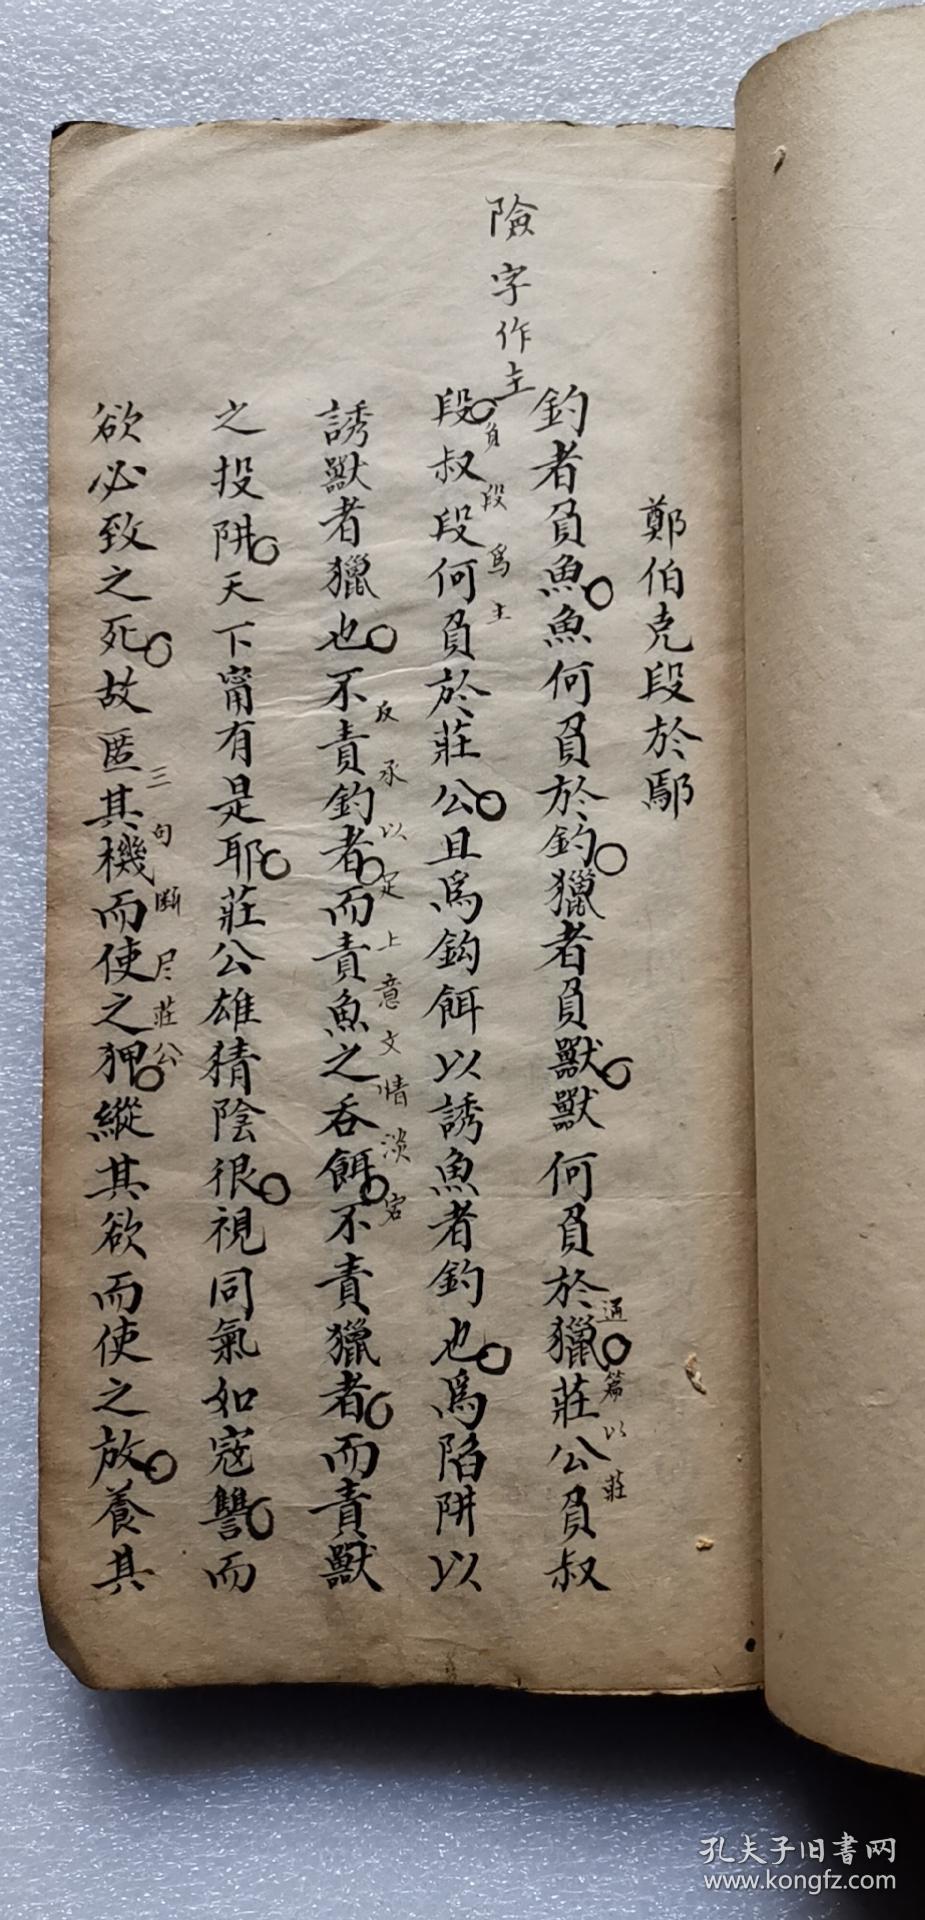 鄭伯克段於鄢
險字作主
釣者負魚魚何負於釣獵者負獸獸何負於獵莊公負叔
通篇以莊
段叔段何負於莊公且爲鈎餌以誘魚者釣也爲陷阱以
負段爲主
誘獸者獵也不責釣者而責魚之吞餌不責獵者而責獸
反承以足上意文情淡宕
之投阱天下甯有是耶莊公雄猜陰很視同氣如寇讐而
欲必致之死故匿其機而使之狎縱其欲而使之放養其
三句斷尽莊公
孔夫子旧書网
www.kongfz.com